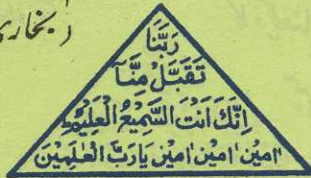 بخاری
رَبَّنَا
تَقَبَّلْ مِنَّآ
اِنَّكَ اَنْتَ السَّمِيْعُ الْعَلِيْمُ
اٰمین اٰمین اٰمین یَارَبَّ الْعٰلَمِیْنَ